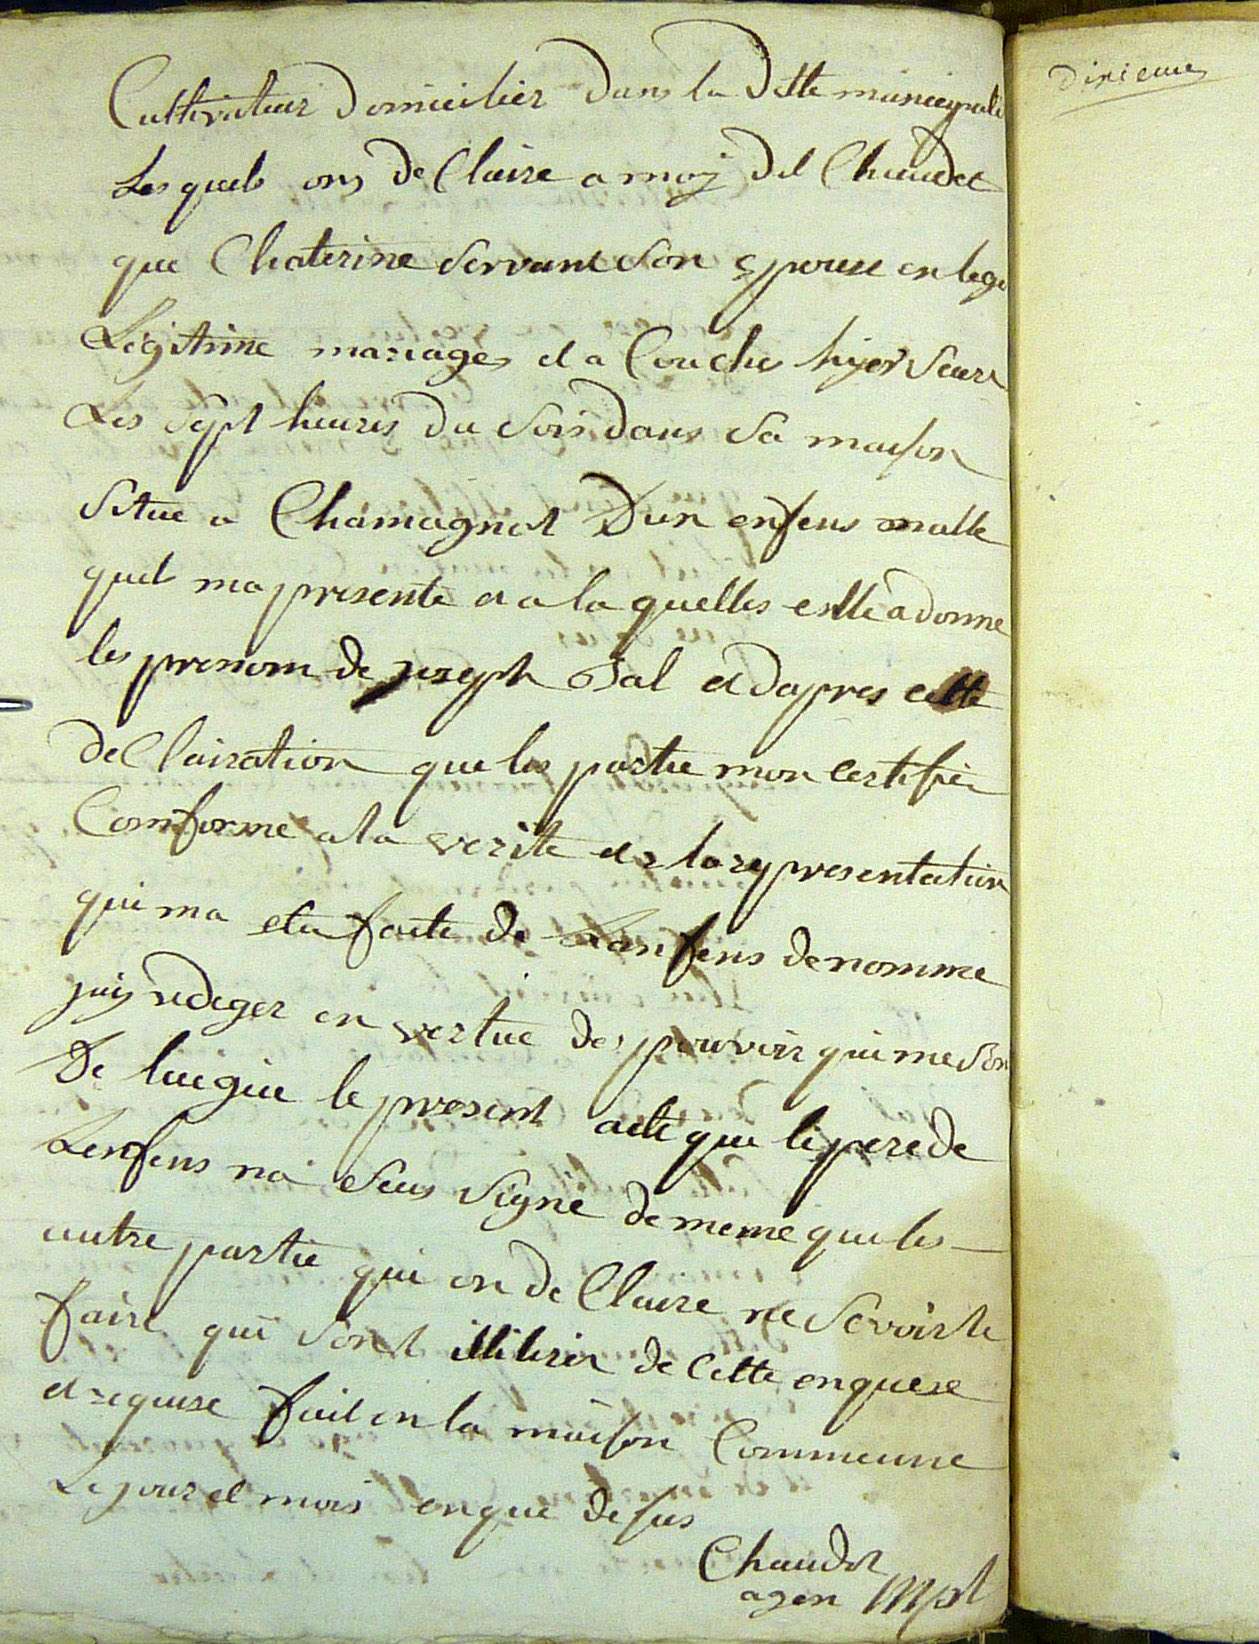 Cultivateur Domicilier Dans la Ditte municipali
Les quels ons De Claire a moy dit Chaudet
que Chaterine Servant Son epouse en lege
Legitime mariages et a Couches hyer Seure
Les Sept heures Du Soir dans Sa maison
Situe a Chamagnot Dun enfens malle
quil ma presente et a la quelles estte a donne
les prenom de joseph Bal et dapres cette
de Clairation que les partie mon Certifier
Comforme a la verite et a la representation
qui ma ete faite de Lanfens denomme
jay rediger en vertue des pouvoir qui me Son
De luegue le present acte que le pere de
Lenfens na Seus Signe de meme que les
autre partie qui on de Claire ne Sevoir le
faire qui Sont illiterer de Cette enquere
et requise fait en la maison Commeune
Le jour et mois en que desus
Chaudet
agen mpl
Dixieme